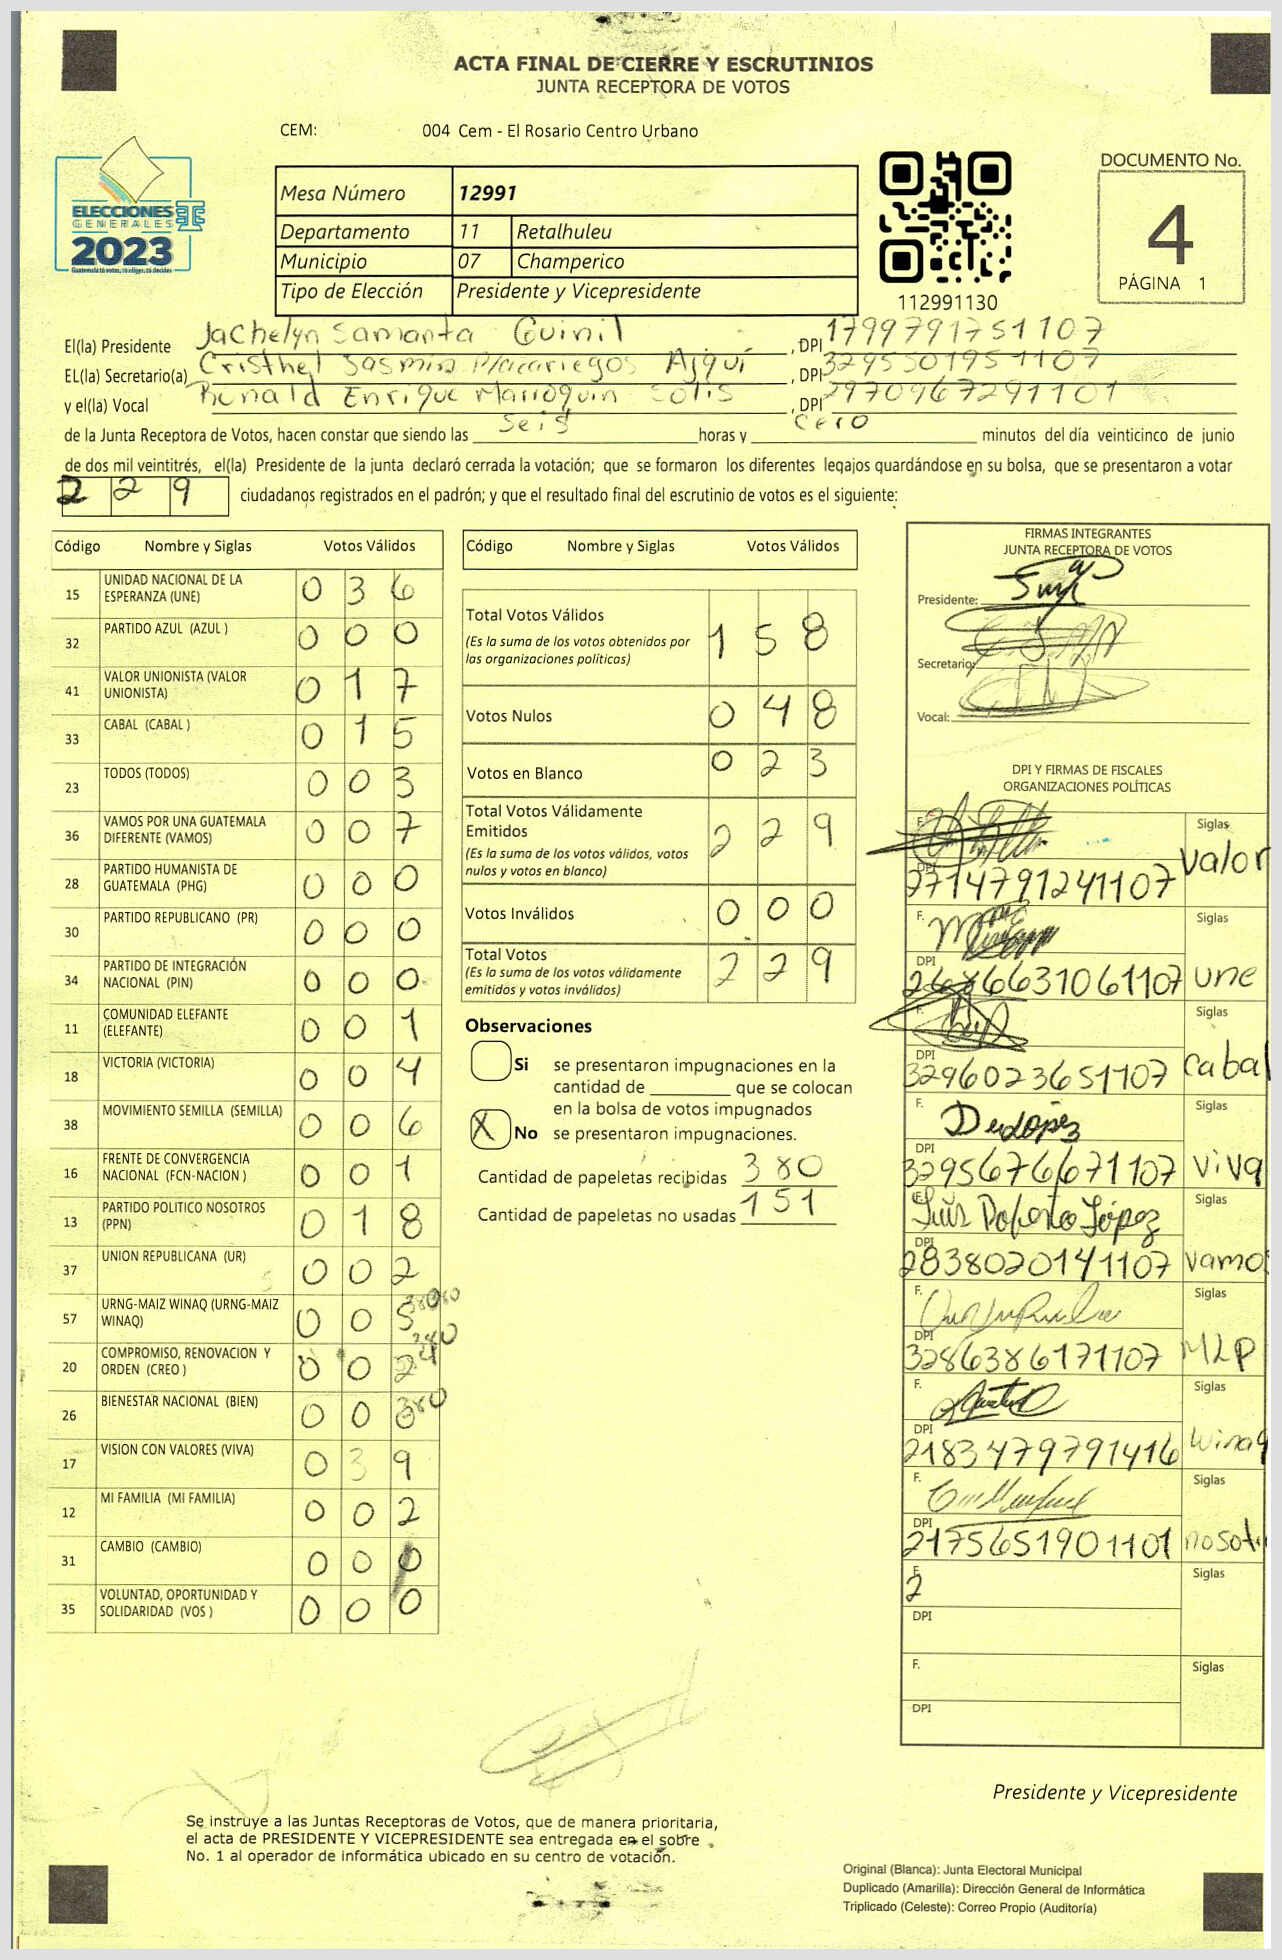 ACTA FINAL DE CIERRE Y ESCRUTINIOS
JUNTA RECEPTORA DE VOTOS
CEM: 004 Cem - El Rosario Centro Urbano
ELECCIONES
GENERALES
2023
Guatemala tú votas, tú eliges, tú decides
Mesa Número 12991
Departamento 11 Retalhuleu
Municipio 07 Champerico
Tipo de Elección Presidente y Vicepresidente
112991130
DOCUMENTO No.
4
PÁGINA 1
El(la) Presidente Jachelyn Samanta Guinil, DPI 1799791751107
EL(la) Secretario(a) Cristhel Ajquí, DPI 3295501951107
y el(la) Vocal Ronald Enrique Marroquin Solis, DPI 2970967291101
de la Junta Receptora de Votos, hacen constar que siendo las seis horas y cero minutos del día veinticinco de junio
de dos mil veintitrés, el(la) Presidente de la junta declaró cerrada la votación; que se formaron los diferentes legajos quardándose en su bolsa, que se presentaron a votar
2 2 9 ciudadanos registrados en el padrón; y que el resultado final del escrutinio de votos es el siguiente:
Código Nombre y Siglas Votos Válidos
15 UNIDAD NACIONAL DE LA ESPERANZA (UNE) 0 3 6
32 PARTIDO AZUL (AZUL ) 0 0 0
41 VALOR UNIONISTA (VALOR UNIONISTA) 0 1 7
33 CABAL (CABAL ) 0 1 5
23 TODOS (TODOS) 0 0 3
36 VAMOS POR UNA GUATEMALA DIFERENTE (VAMOS) 0 0 7
28 PARTIDO HUMANISTA DE GUATEMALA (PHG) 0 0 0
30 PARTIDO REPUBLICANO (PR) 0 0 0
34 PARTIDO DE INTEGRACIÓN NACIONAL (PIN) 0 0 0
11 COMUNIDAD ELEFANTE (ELEFANTE) 0 0 1
18 VICTORIA (VICTORIA) 0 0 4
38 MOVIMIENTO SEMILLA (SEMILLA) 0 0 6
16 FRENTE DE CONVERGENCIA NACIONAL (FCN-NACION ) 0 0 1
13 PARTIDO POLITICO NOSOTROS (PPN) 0 1 8
37 UNION REPUBLICANA (UR) 0 0 2
57 URNG-MAIZ WINAQ (URNG-MAIZ WINAQ) 0 0 5
20 COMPROMISO, RENOVACION Y ORDEN (CREO ) 0 0 2
26 BIENESTAR NACIONAL (BIEN) 0 0 0
17 VISION CON VALORES (VIVA) 0 3 9
12 MI FAMILIA (MI FAMILIA) 0 0 2
31 CAMBIO (CAMBIO) 0 0 0
35 VOLUNTAD, OPORTUNIDAD Y SOLIDARIDAD (VOS ) 0 0 0
Código Nombre y Siglas Votos Válidos
Total Votos Válidos 1 5 8
(Es la suma de los votos obtenidos por
las organizaciones políticas)
Votos Nulos 0 4 8
Votos en Blanco 0 2 3
Total Votos Válidamente
Emitidos 2 2 9
(Es la suma de los votos válidos, votos
nulos y votos en blanco)
Votos Inválidos 0 0 0
Total Votos 2 2 9
(Es la suma de los votos válidamente
emitidos y votos inválidos)
Observaciones
Si se presentaron impugnaciones en la
cantidad de ________ que se colocan
en la bolsa de votos impugnados
X No se presentaron impugnaciones.
Cantidad de papeletas recibidas 380
Cantidad de papeletas no usadas 151
FIRMAS INTEGRANTES
JUNTA RECEPTORA DE VOTOS
Presidente:
Secretario:
Vocal:
DPI Y FIRMAS DE FISCALES
ORGANIZACIONES POLÍTICAS
F. Siglas
DPI 2714791241107 Valor
F. Siglas
DPI 2686631061107 une
F. Siglas
DPI 3296023651107 cabal
F. Siglas
DPI 3295676671107 viva
F. Luis López Siglas
DPI 2838020141107 vamos
F. Siglas
DPI 3286386171107 MLP
F. Siglas
DPI 2183479791416 winaq
F. Siglas
DPI 2175651901101 nosotr
F. 2 Siglas
DPI
F. Siglas
DPI
Presidente y Vicepresidente
Se instruye a las Juntas Receptoras de Votos, que de manera prioritaria,
el acta de PRESIDENTE Y VICEPRESIDENTE sea entregada en el sobre
No. 1 al operador de informática ubicado en su centro de votación.
Original (Blanca): Junta Electoral Municipal
Duplicado (Amarilla): Dirección General de Informática
Triplicado (Celeste): Correo Propio (Auditoría)